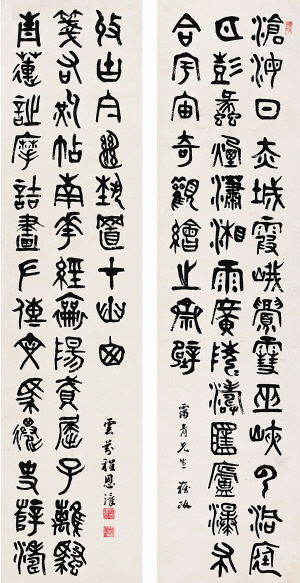 滄海日赤城霞峨嵋雪巫峽雲洞庭
月彭蠡煙瀟湘雨廣陵濤匡廬瀑布
合宇宙奇觀繪齋壁
青先生 雅政
青蓮詩摩詰畫左傳文遷史薛濤
箋右軍帖南華經賦屈子離騷
收古今絕藝置山窗
雲芬程恩澤